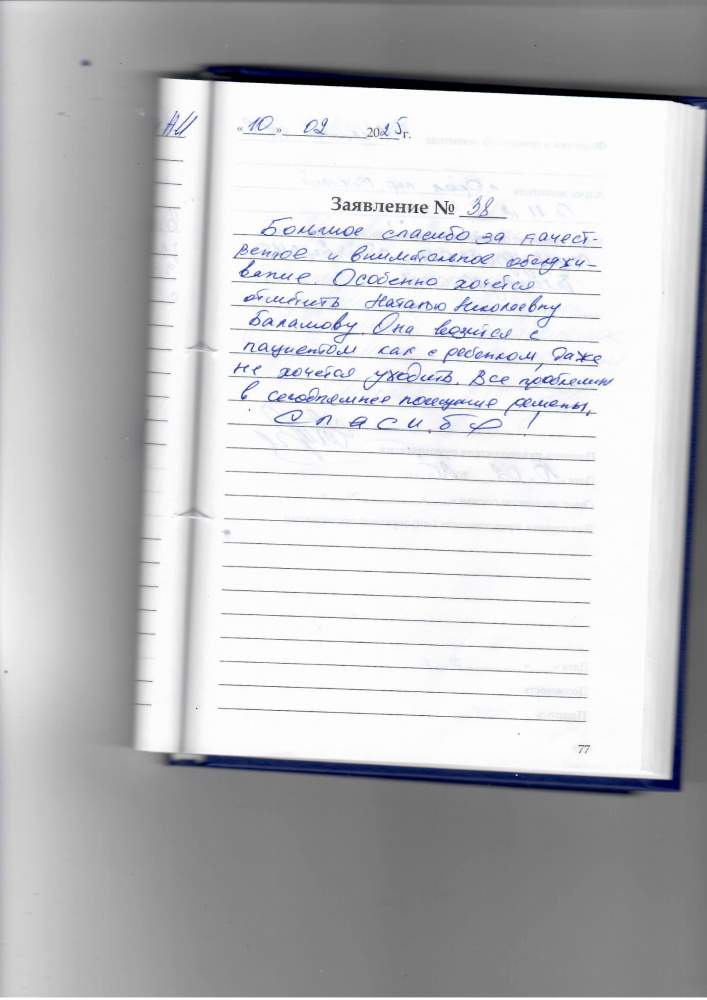 «10» 02 2025г.
Заявление № 38
Большое спасибо за качест-
венное и внимательное обслужи-
вание. Особенно хочется
отметить Наталью Николаевну
Баламову. Она возится с
пациентом как с ребенком, даже
не хочется уходить. Все проблемы
в сегодняшнее посещение решены.
Спасибо!
77